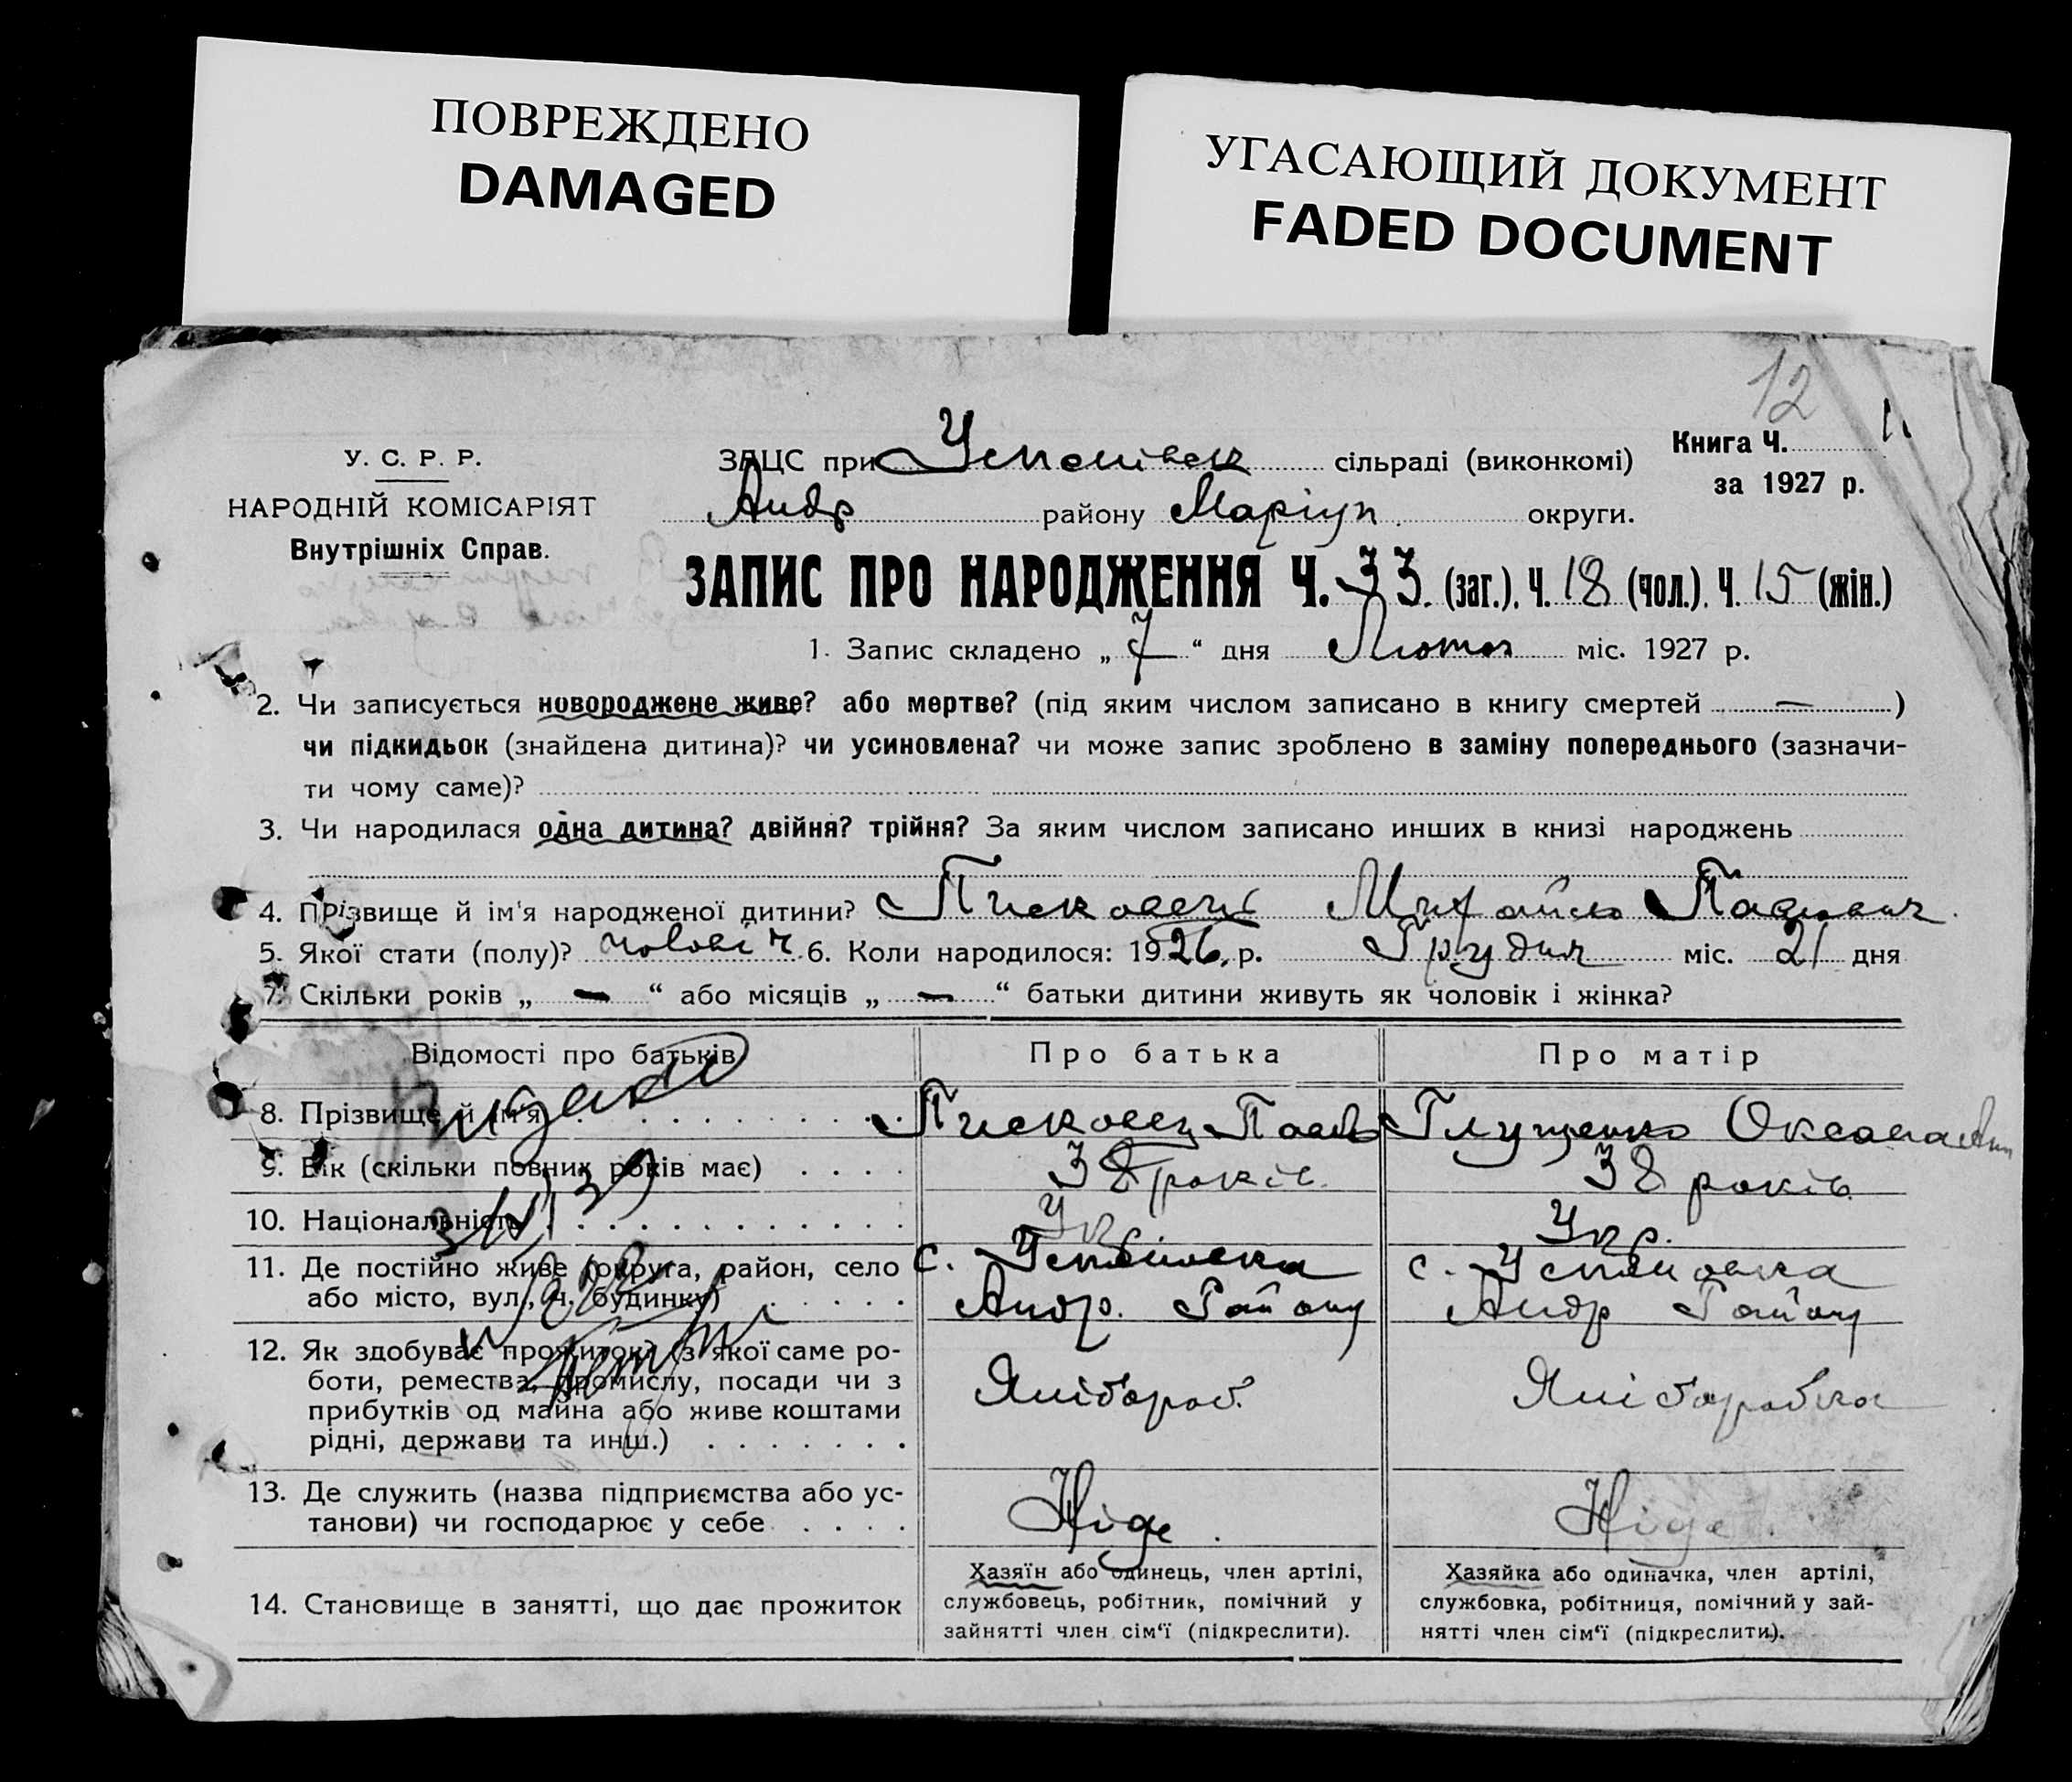 ПОВРЕЖДЕНО
DAMAGED
УГАСАЮЩИЙ ДОКУМЕНТ
FADED DOCUMENT
12
У. С. Р. Р.
НАРОДНІЙ КОМІСАРІЯТ
Внутрішніх Справ.
ЗАЦС при Успенівск сільраді (виконкомі)
Андр району Маріуп округи.
Книга Ч.
за 1927 р.
ЗАПИС ПРО НАРОДЖЕННЯ Ч. 33. (заг.). Ч. 18 (чол.). Ч. 15 (жін.)
1. Запис складено „ 7 “ дня Лютого міс. 1927 р.
2. Чи записується новороджене живе? або мертве? (під яким числом записано в книгу смертей — )
чи підкидьок (знайдена дитина)? чи усиновлена? чи може запис зроблено в заміну попереднього (зазначи-
ти чому саме)?
3. Чи народилася одна дитина? двійня? трійня? За яким числом записано инших в книзі народжень
4. Прізвище й ім'я народженої дитини? Писковець Михайло Павлович
5. Якої стати (полу)? чоловіч. 6. Коли народилося: 1926 р. Грудня міс. 21 дня
7. Скільки років „ — “ або місяців „ — “ батьки дитини живуть як чоловік і жінка?
Відомості про батьків
Про батька
Про матір
8. Прізвище й ім'я
Писковец Павло
Глущенко Оксана
9. Вік (скільки повних років має)
38 років
38 років
10. Національність
Укр
Укр.
11. Де постійно живе (округа, район, село
або місто, вул., ч. будинку)
с. Успенівка
Андр. Району
с. Успенівка
Андр Району
12. Як здобуває прожиток (з якої саме ро-
боти, ремества, промислу, посади чи з
прибутків од майна або живе коштами
рідні, держави та инш.)
Хлібороб.
Хліборобка
13. Де служить (назва підприємства або ус-
танови) чи господарює у себе
Ніде.
Ніде.
14. Становище в занятті, що дає прожиток
Хазяїн або одинець, член артілі,
службовець, робітник, помічний у
зайнятті член сім‘ї (підкреслити).
Хазяйка або одиначка, член артілі,
службовка, робітниця, помічний у зай-
нятті член сім‘ї (підкреслити).